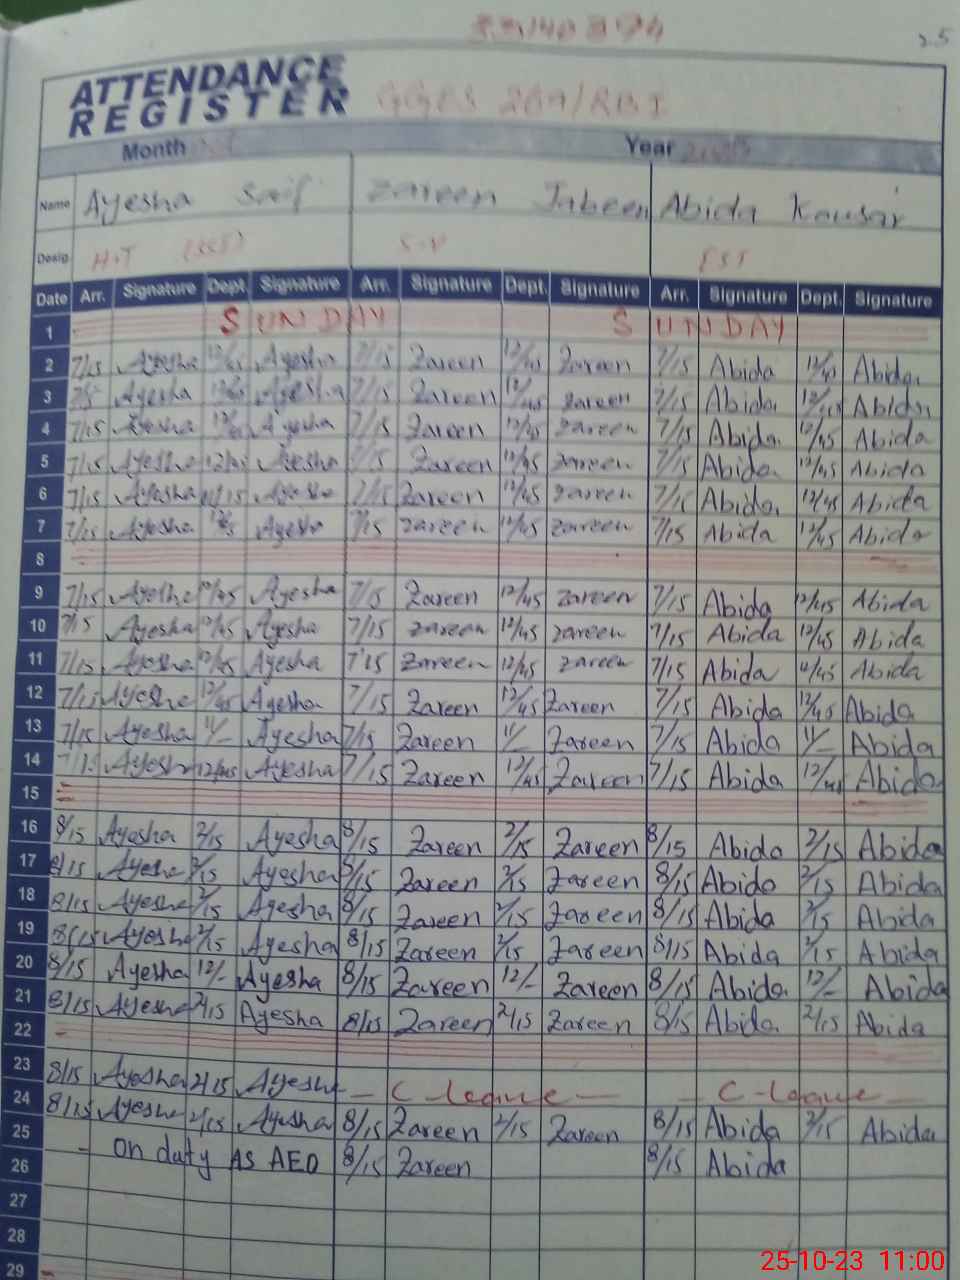 25
ATTENDANCE
REGISTER GGES 269/RBI
Month Year
Name Ayesha Saif Zareen Jabeen Abida Kousar
Desig. H.T S.V EST
Date Arr. Signature Dept. Signature Arr. Signature Dept. Signature Arr. Signature Dept. Signature
1 SUNDAY SUNDAY
2 7/15 Ayesha 12/45 Ayesha 7/15 Zareen 12/45 Zareen 7/15 Abida 12/45 Abida
3 Ayesha Ayesha 7/15 Zareen 12/45 Zareen 7/15 Abida 12/45 Abida
4 7/15 Ayesha Ayesha 7/15 Zareen 12/45 Zareen 7/15 Abida 12/45 Abida
5 7/15 Ayesha 12/45 Ayesha 7/15 Zareen 12/45 Zareen 7/15 Abida 12/45 Abida
6 7/15 Ayesha Ayesha 7/15 Zareen 12/45 Zareen 7/15 Abida 12/45 Abida
7 7/15 Ayesha Ayesha 7/15 Zareen 12/45 Zareen 7/15 Abida 12/45 Abida
8
9 7/15 Ayesha 12/45 Ayesha 7/15 Zareen 12/45 Zareen 7/15 Abida 12/45 Abida
10 7/15 Ayesha 12/45 Ayesha 7/15 Zareen 12/45 Zareen 7/15 Abida 12/45 Abida
11 7/15 Ayesha 12/45 Ayesha 7/15 Zareen 12/45 Zareen 7/15 Abida 12/45 Abida
12 7/15 Ayesha 12/45 Ayesha 7/15 Zareen 12/45 Zareen 7/15 Abida 12/45 Abida
13 7/15 Ayesha 11/- Ayesha 7/15 Zareen 11/- Zareen 7/15 Abida 11/- Abida
14 7/15 Ayesha 12/45 Ayesha 7/15 Zareen 12/45 Zareen 7/15 Abida 12/45 Abida
15
16 8/15 Ayesha 2/15 Ayesha 8/15 Zareen 2/15 Zareen 8/15 Abida 2/15 Abida
17 8/15 Ayesha 2/15 Ayesha 8/15 Zareen 2/15 Zareen 8/15 Abida 2/15 Abida
18 8/15 Ayesha 2/15 Ayesha 8/15 Zareen 2/15 Zareen 8/15 Abida 2/15 Abida
19 8/15 Ayesha 2/15 Ayesha 8/15 Zareen 2/15 Zareen 8/15 Abida 2/15 Abida
20 8/15 Ayesha 12/- Ayesha 8/15 Zareen 12/- Zareen 8/15 Abida 12/- Abida
21 8/15 Ayesha 2/15 Ayesha 8/15 Zareen 2/15 Zareen 8/15 Abida 2/15 Abida
22
23 8/15 Ayesha 2/15 Ayesha - C leave - - C leave -
24 8/15 Ayesha 2/15 Ayesha 8/15 Zareen 2/15 Zareen 8/15 Abida 2/15 Abida
25 - on duty AS AEO 8/15 Zareen 8/15 Abida
26
27
28
29
25-10-23 11:00